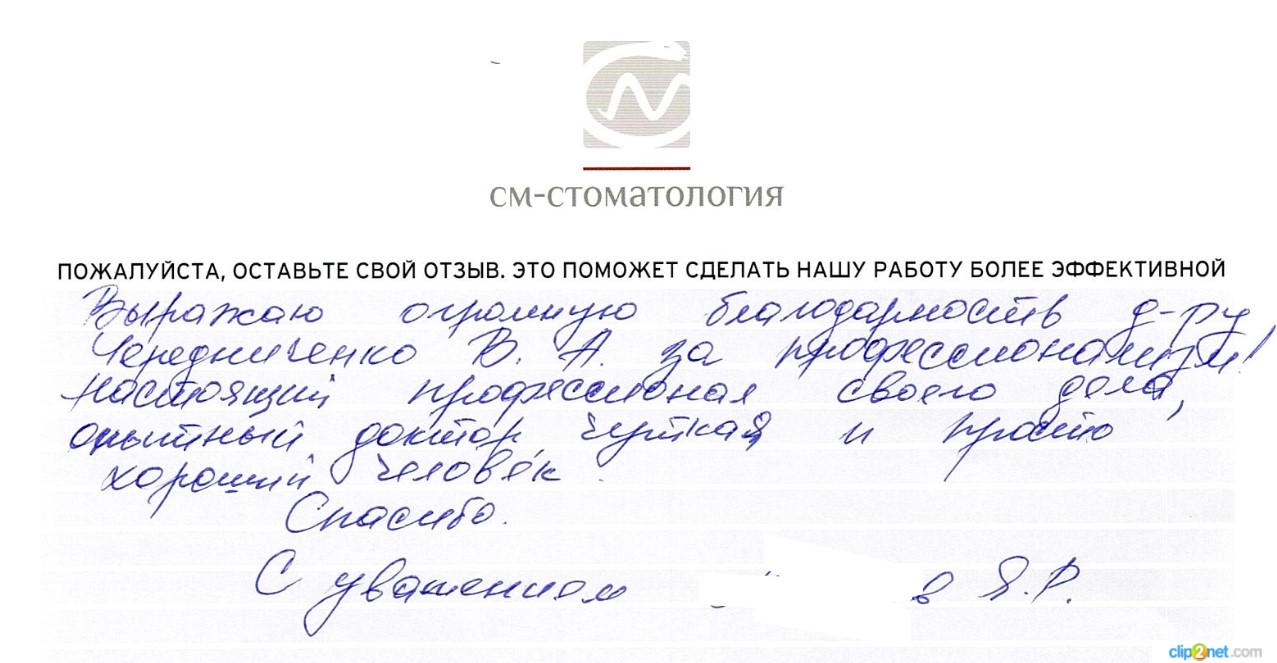 см-стоматология
ПОЖАЛУЙСТА, ОСТАВЬТЕ СВОЙ ОТЗЫВ. ЭТО ПОМОЖЕТ СДЕЛАТЬ НАШУ РАБОТУ БОЛЕЕ ЭФФЕКТИВНОЙ
Выражаю огромную благодарность д-ру
Чередниченко В. А за профессионализм!
настоящий профессионал своего дела,
опытный доктор чуткая и просто
хороший человек.
Спасибо.
С уважением в Я.Р.
clip2net.com